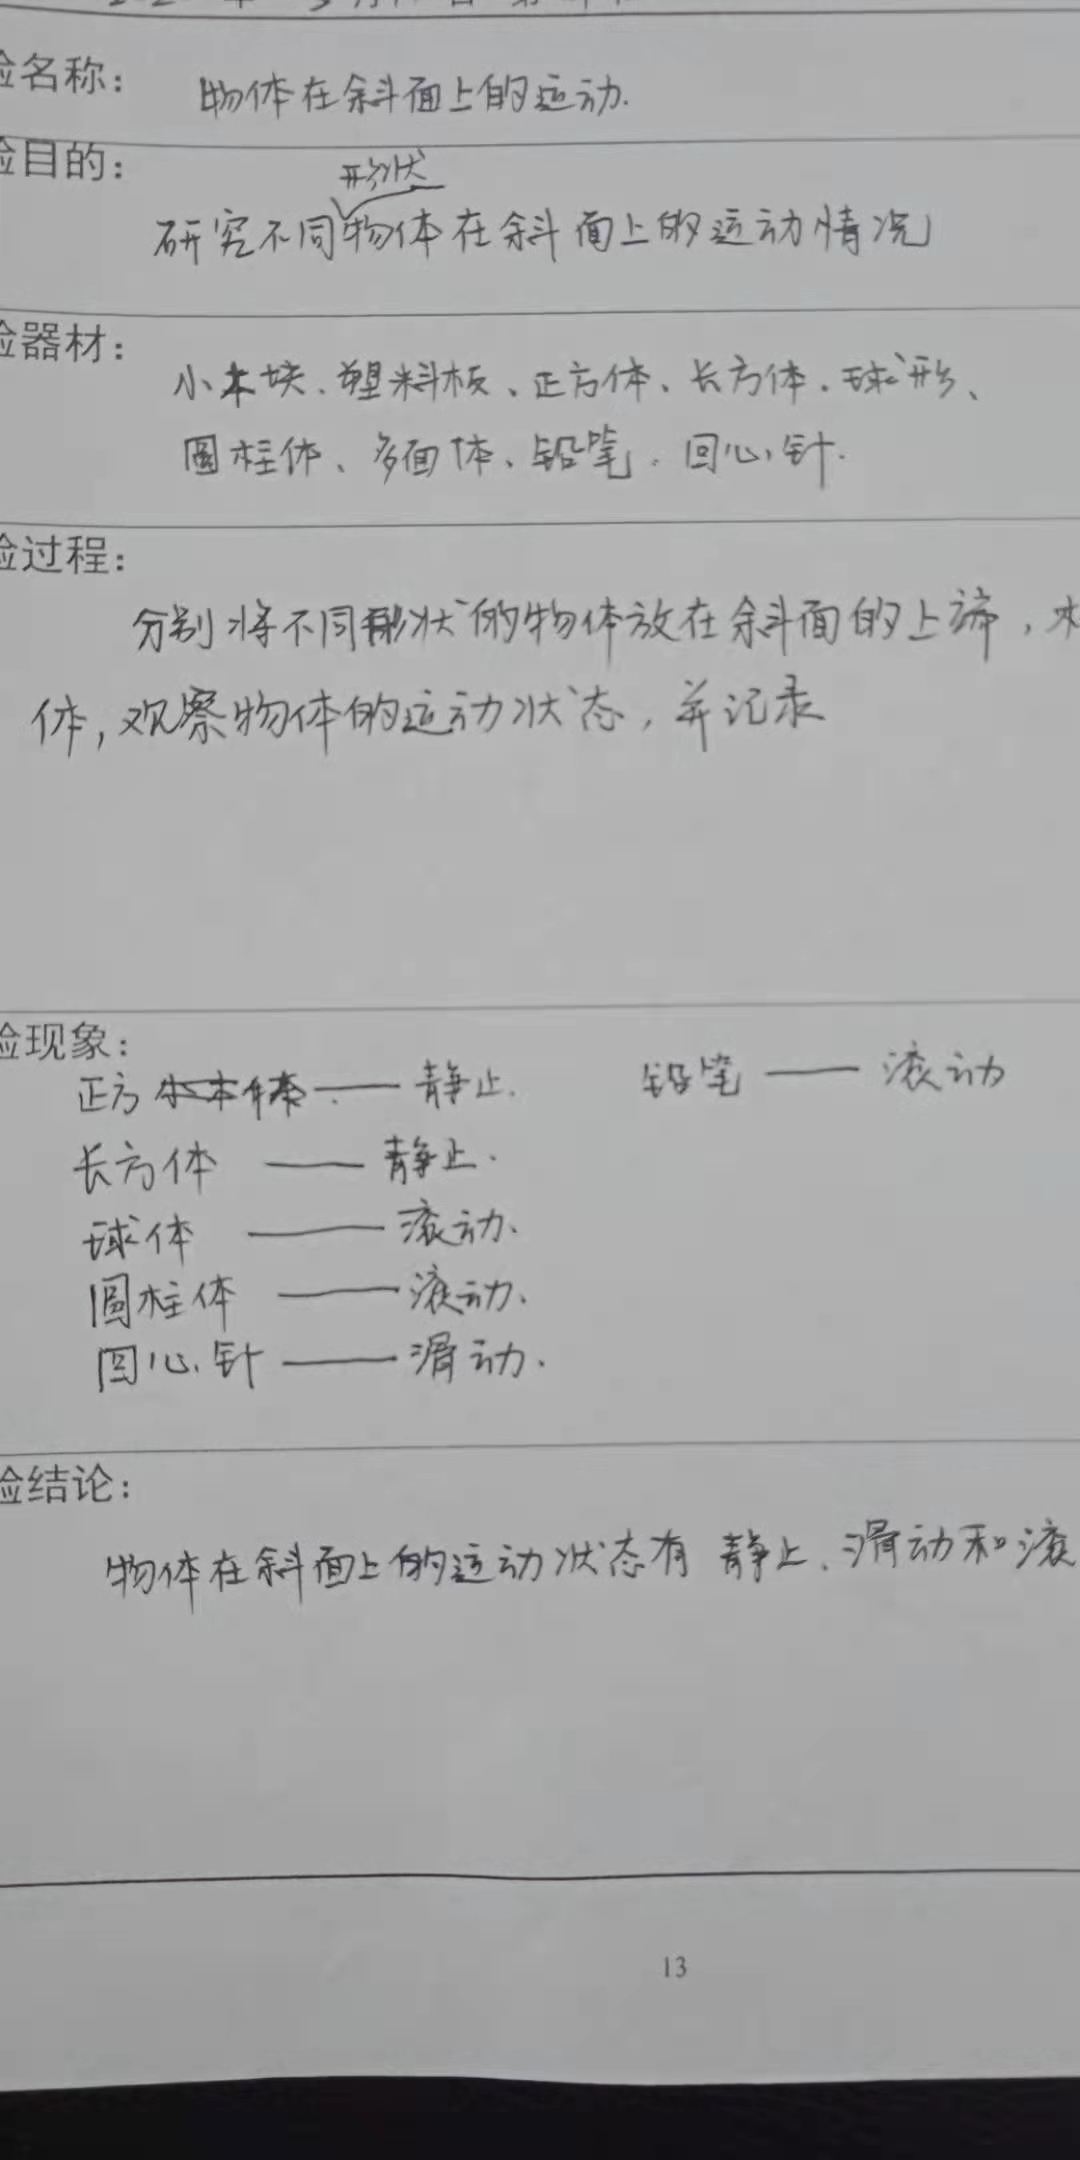 验名称：
物体在斜面上的运动.
验目的：
形状
研究不同物体在斜面上的运动情况
验器材：
小木块、塑料板、正方体、长方体、球形、
圆柱体、多面体、铅笔、回心针.
验过程：
分别将不同形状的物体放在斜面的上端，木
体，观察物体的运动状态，并记录
验现象：
正方体 —— 静止.
铅笔 —— 滚动
长方体 —— 静止.
球体 —— 滚动.
圆柱体 —— 滚动.
回心针 —— 滑动.
验结论：
物体在斜面上的运动状态有 静止、滑动和滚
13